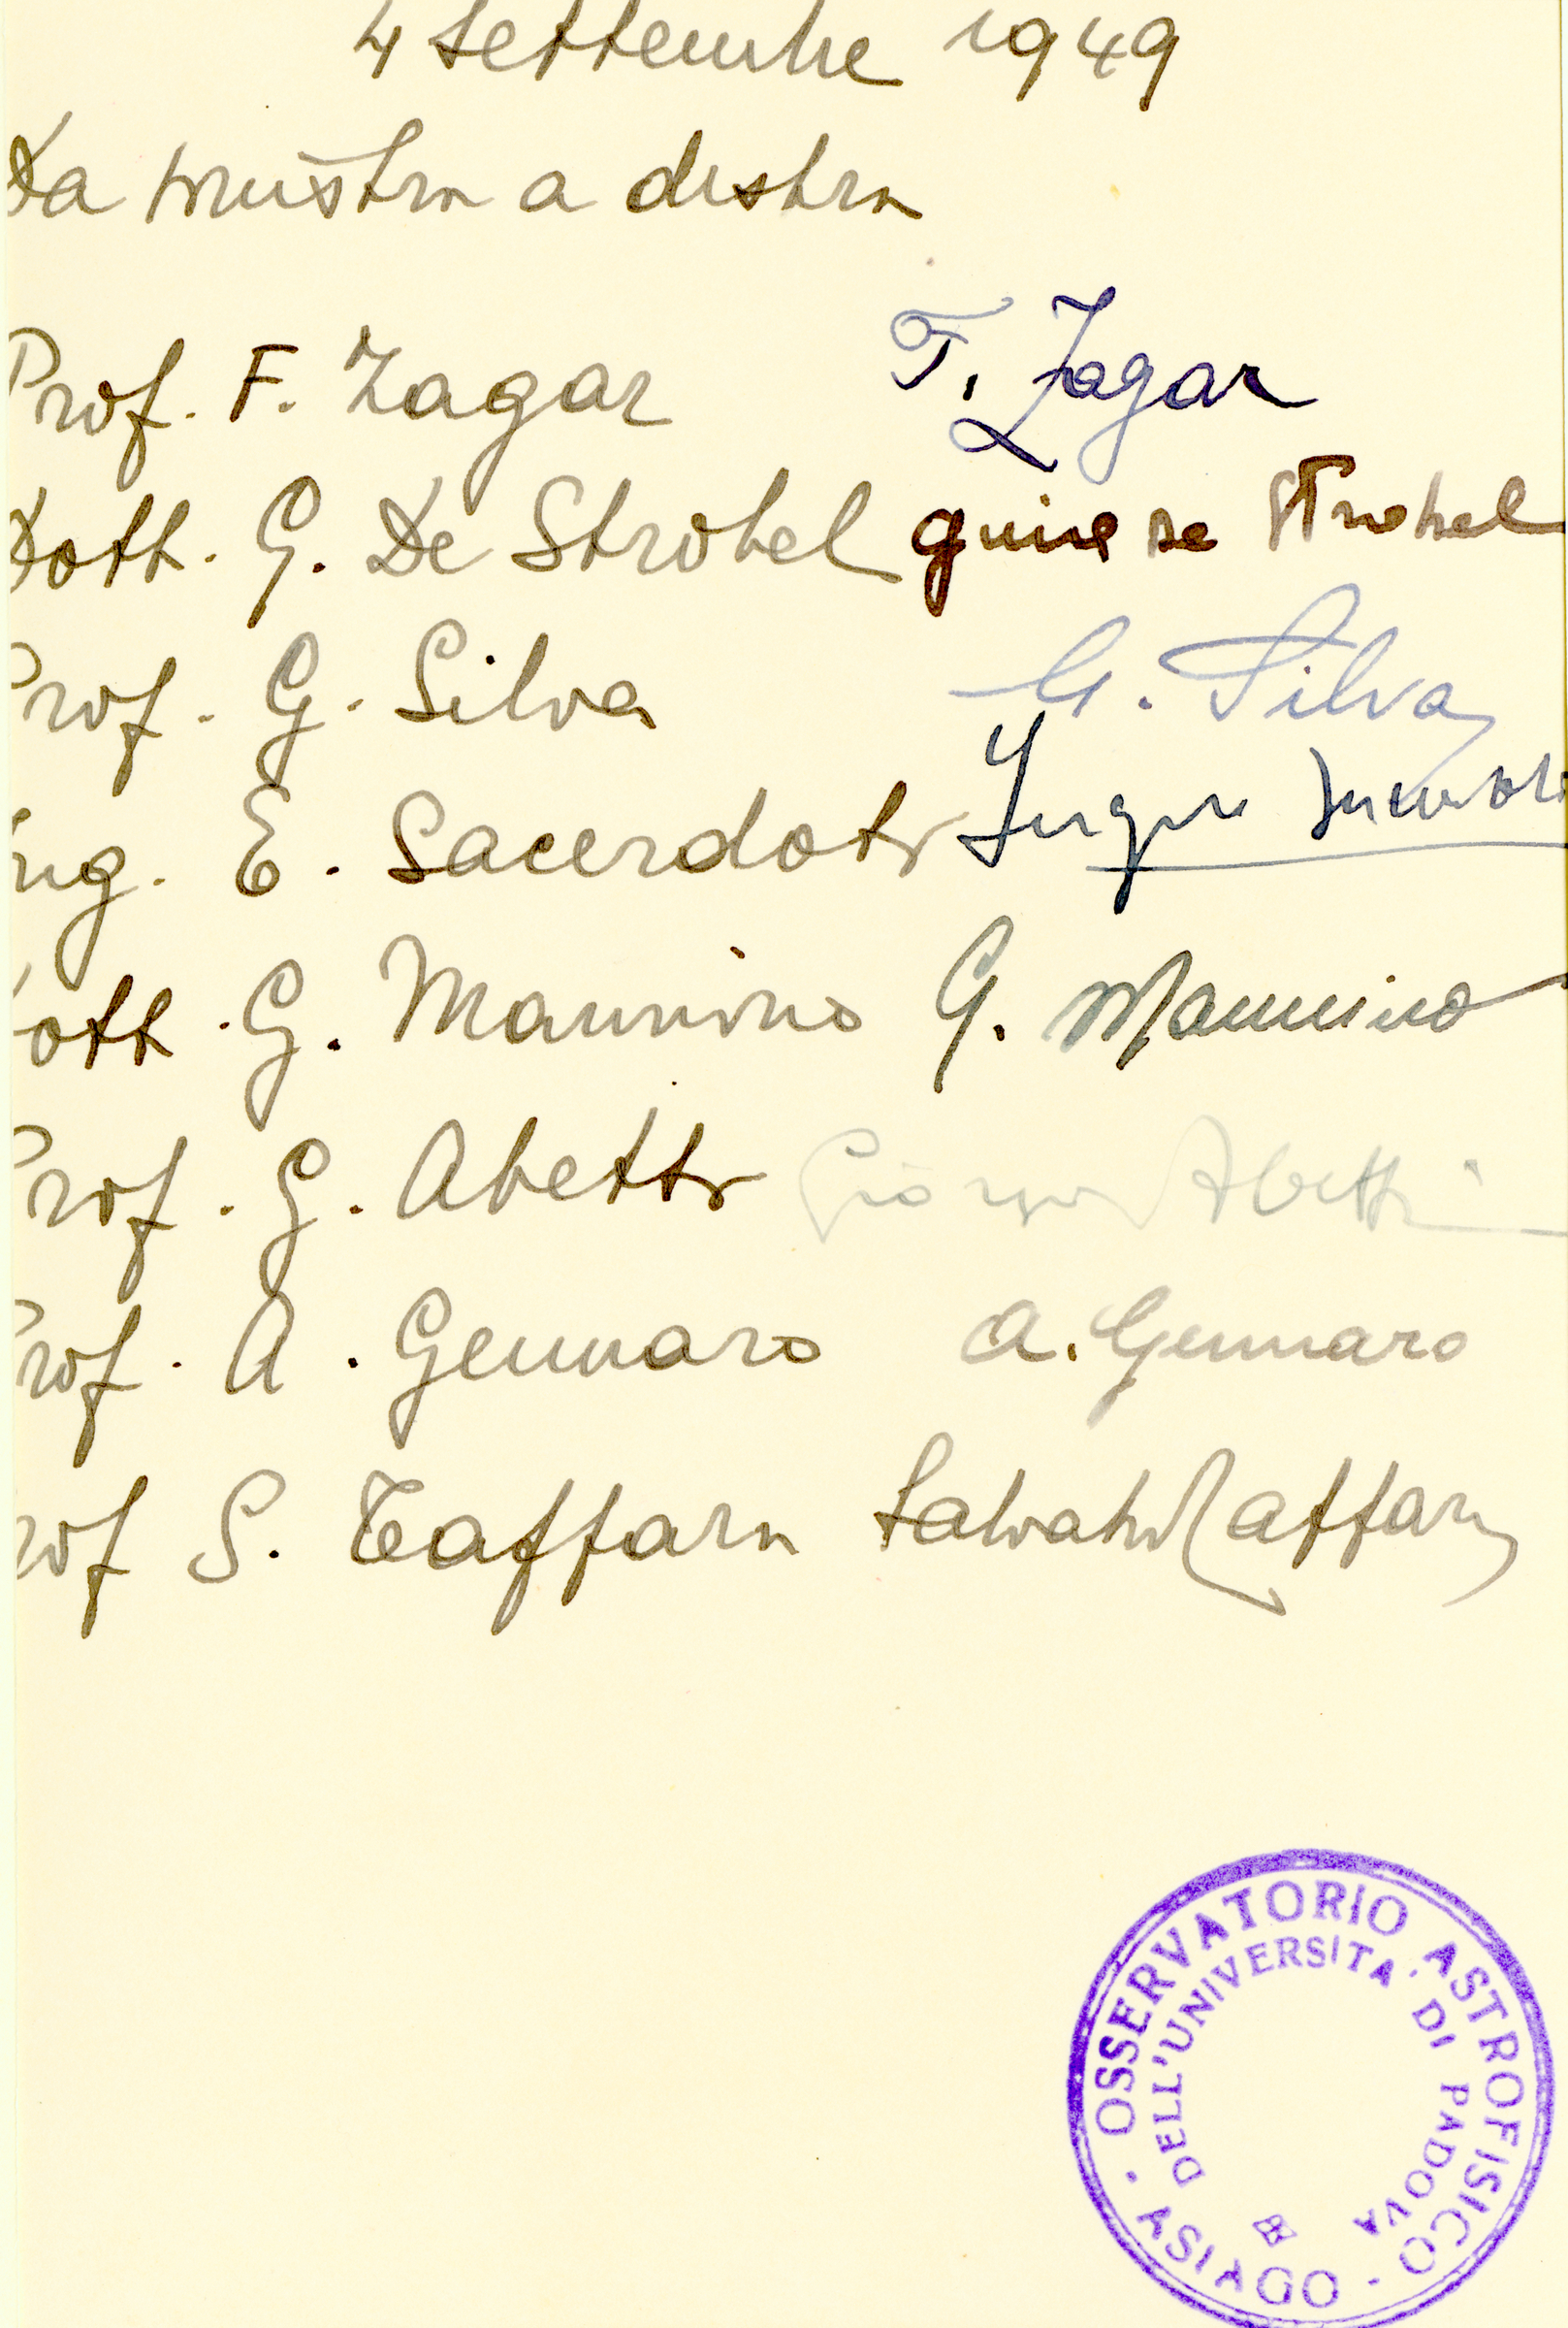 4 settembre 1949
Da sinistra a destra
Prof. F. Zagar F. Zagar
Dott. G. De Strobel giusa de Strobel
Prof. G. Silva G. Silva
Ing. E. Sacerdoti
Dott. G. Mannino G. Mannino
Prof. G. Abetti Giorgio Abetti
Prof. A. Gennaro A. Gennaro
Prof S. Taffara Salvatore Taffara
OSSERVATORIO ASTROFISICO - ASIAGO -
DELL'UNIVERSITA' DI PADOVA